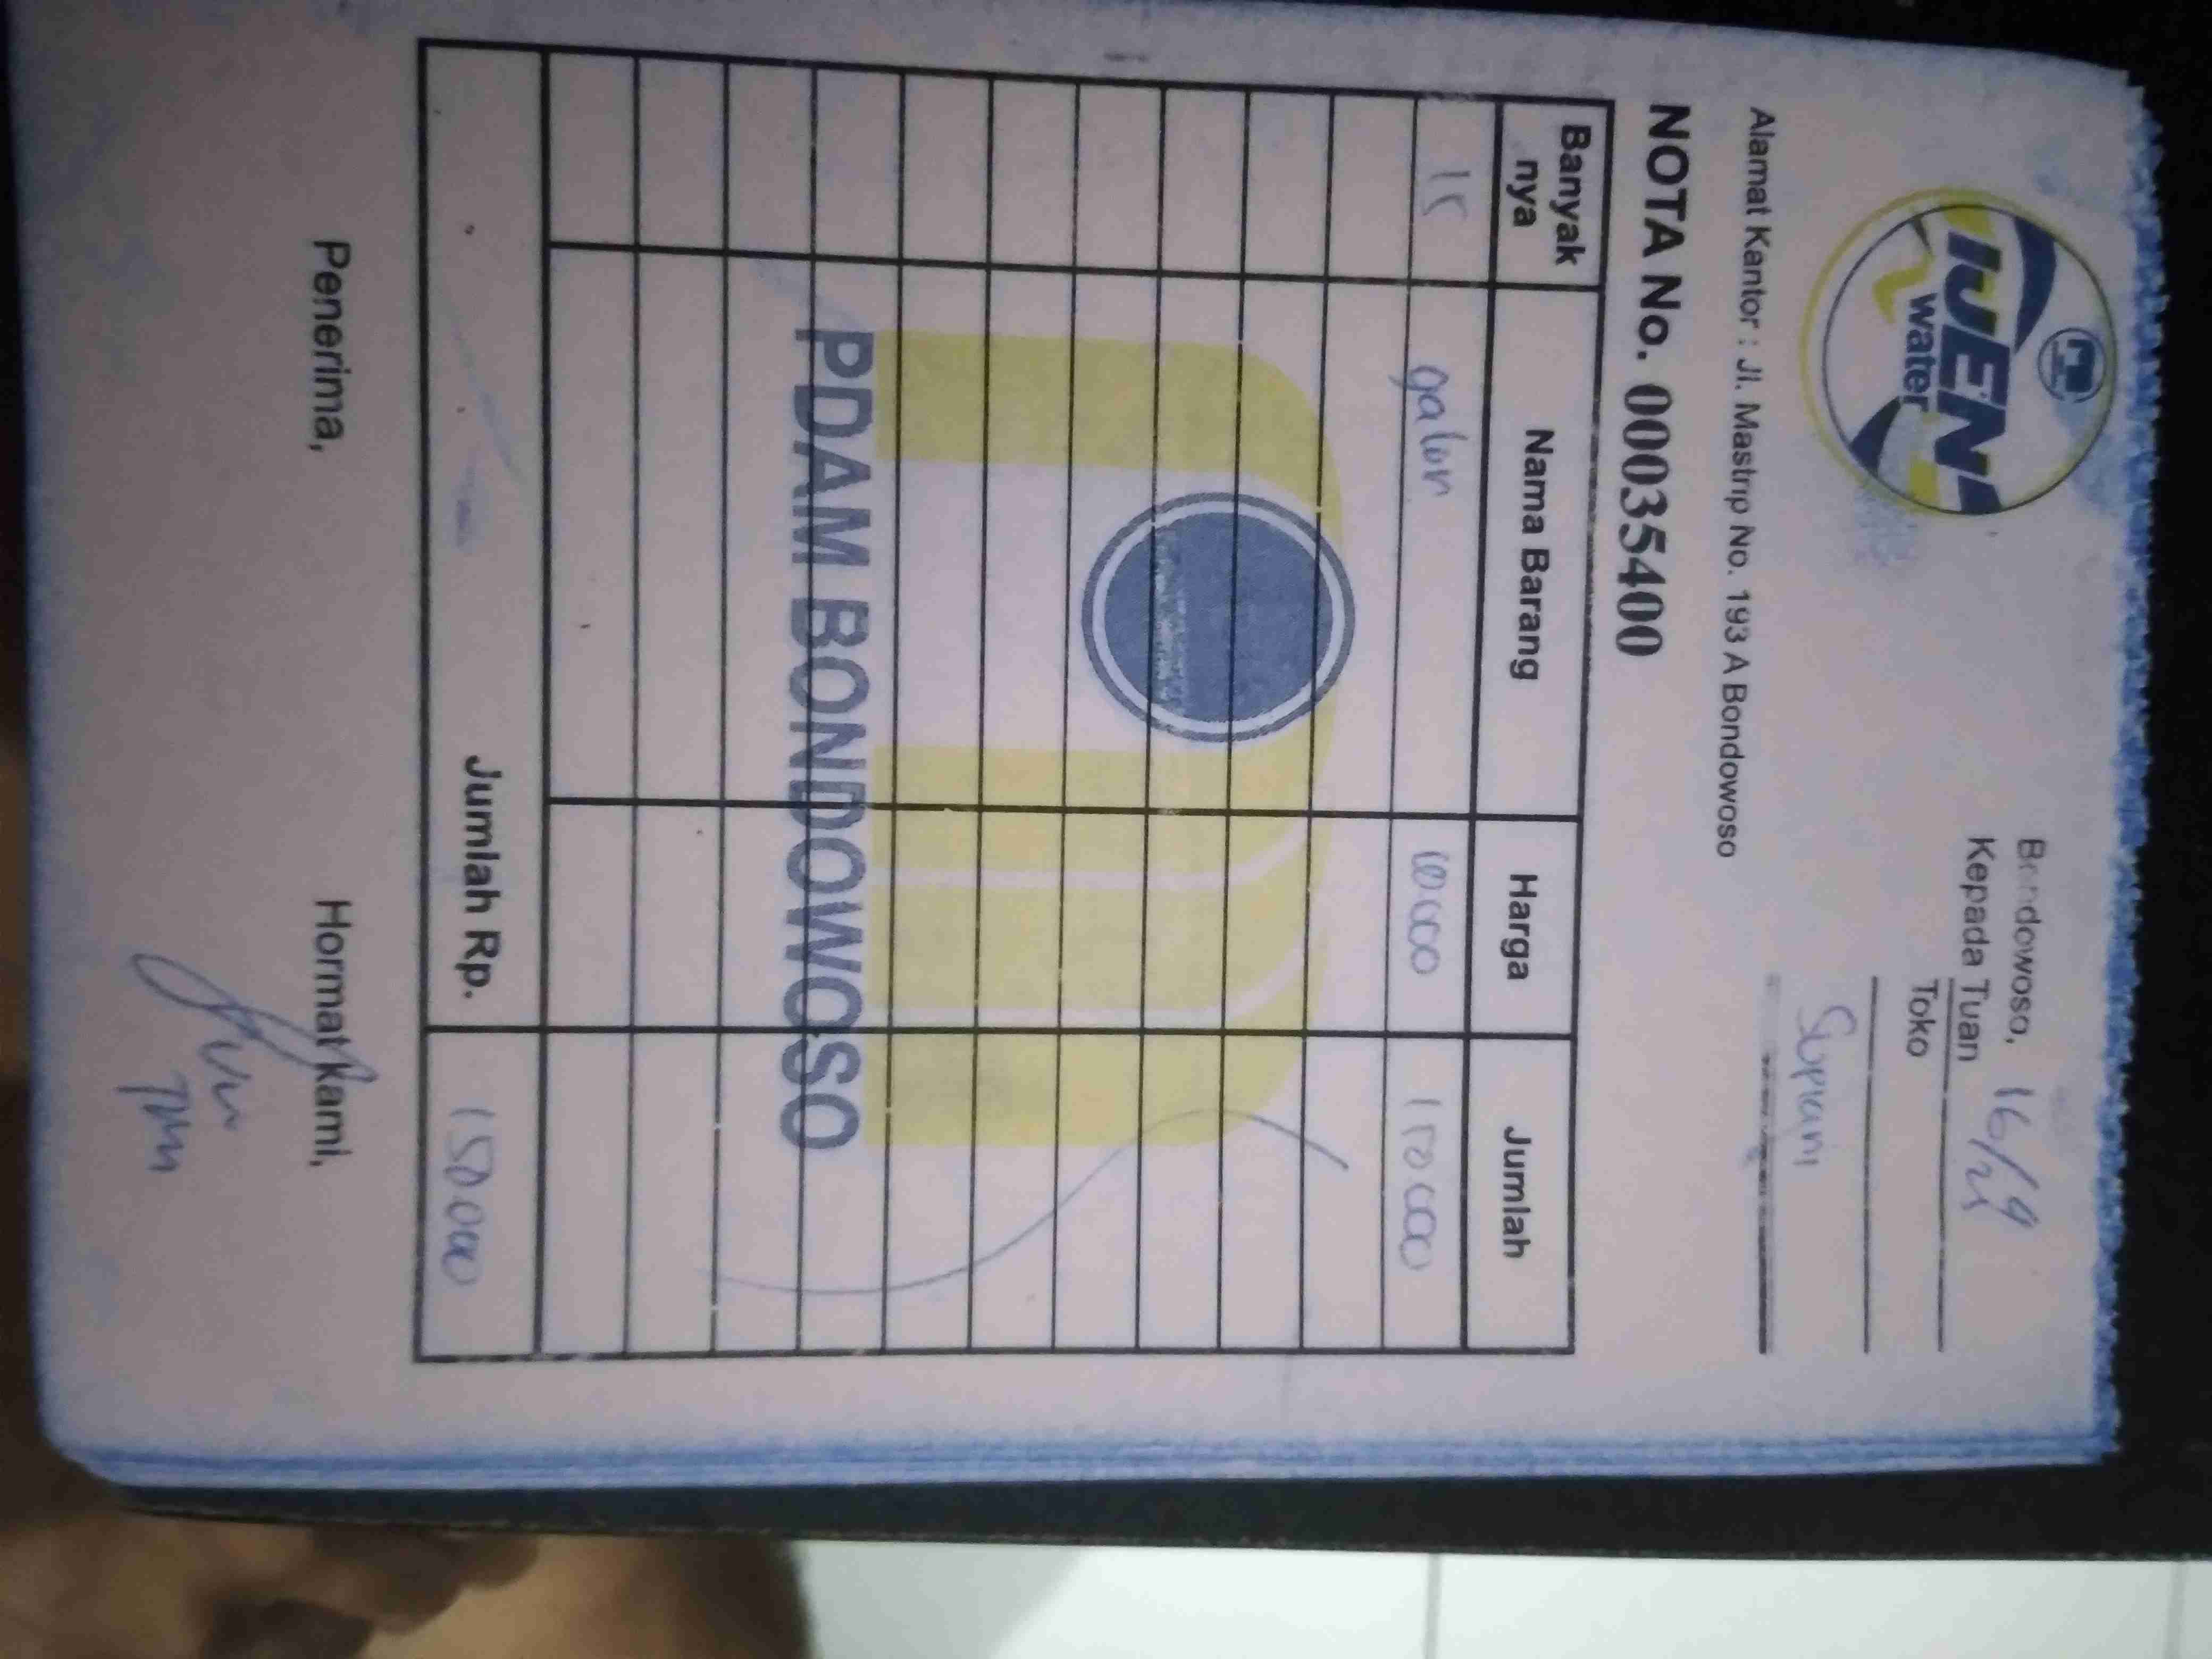 IJEN
water
Bondowoso, 16/9
Kepada Tuan
Toko
Supriani
Alamat Kantor : Jl. Mastrip No. 193 A Bondowoso
NOTA No. 00035400
Banyak nya Nama Barang Harga Jumlah
15 galon 10000 150000
PDAM BONDOWOSO
Jumlah Rp. 150000
Penerima, Hormat kami,